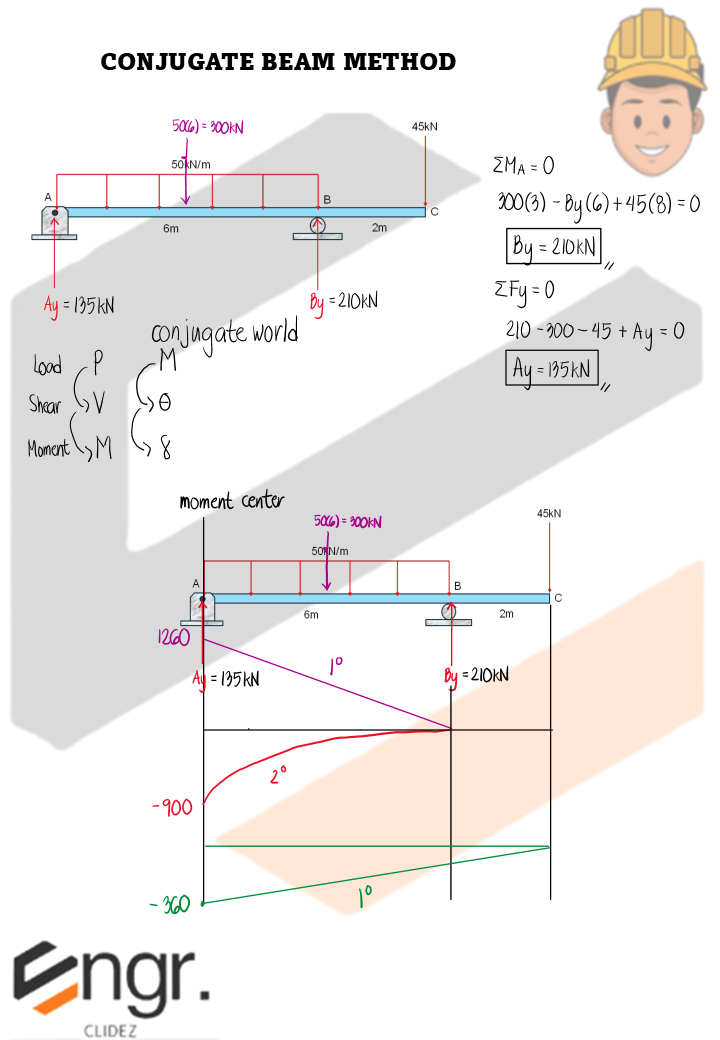 CONJUGATE BEAM METHOD
50(6) = 300kN
45kN
50kN/m
A
B
C
6m
2m
Ay = 135kN
By = 210kN
ΣMA = 0
300(3) - By(6) + 45(8) = 0
By = 210kN
ΣFy = 0
210 - 300 - 45 + Ay = 0
Ay = 135kN
conjugate world
Load P M
Shear V θ
Moment M δ
moment center
50(6) = 300kN
45kN
50kN/m
A
B
C
6m
2m
1260
Ay = 135kN
By = 210kN
1°
2°
-900
-360
1°
Engr.
CLIDEZ